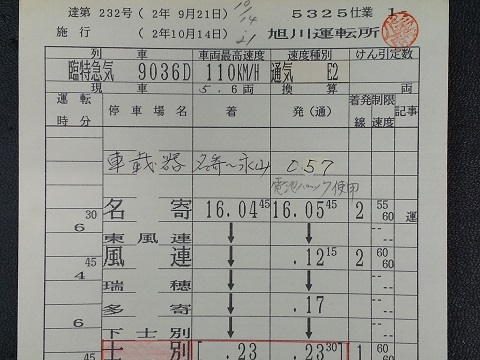 達第 232号 ( 2年 9月21日) 10/14 5325仕業 1
施行 ( 2年10月14日) 21 旭川運転所
列車 車両最高速度 速度種別 けん引定数
臨特急気 9036D 110KM/H 通気 E2
現車 5.6両 換算 両
運転時分 停車場名 着 発(通) 着発線 制限速度 記事
車載器 名寄〜永山 057
電池パック使用
30 名寄 16.04 45 16.05 45 2 55 60 運
6 東風連 ↓ ↓ -- --
45 風連 ↓ .12 15 2 60 60
4 瑞穂 ↓ ↓ -- --
多寄 ↓ .17 -- --
6 下士別 ↓ ↓ -- --
45 士別 [ .23 .23 30 ] 1 60